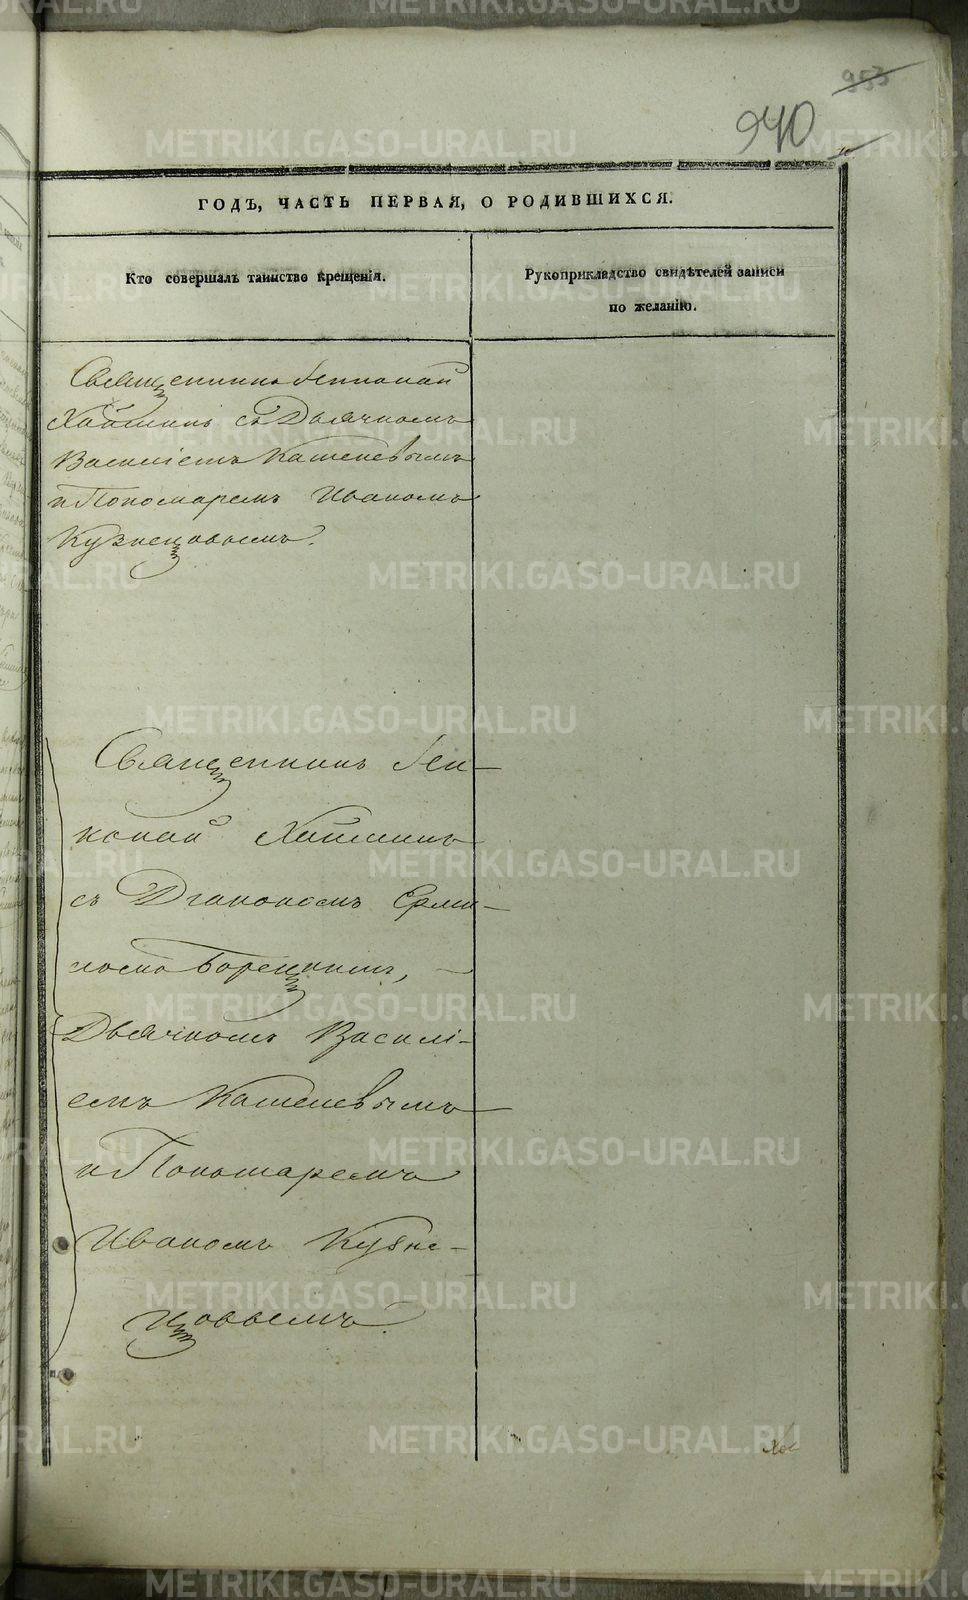 953
940
ГОДЪ, ЧАСТЬ ПЕРВАЯ, О РОДИВШИХСЯ.
Кто совершалъ таинство крещенія.
Рукоприкладство свидѣтелей записи
по желанію.
Священникъ
съ Дьячкомъ
Василіемъ Кашелевымъ
и Пономаремъ Иваномъ
Кузнецовымъ.
Священникъ
съ Діакономъ Ерми-
Борецкимъ,
Дьячкомъ Василі-
емъ Кашелевымъ
и Пономаремъ
Иваномъ Кузне-
цовымъ.
METRIKI.GASO-URAL.RU